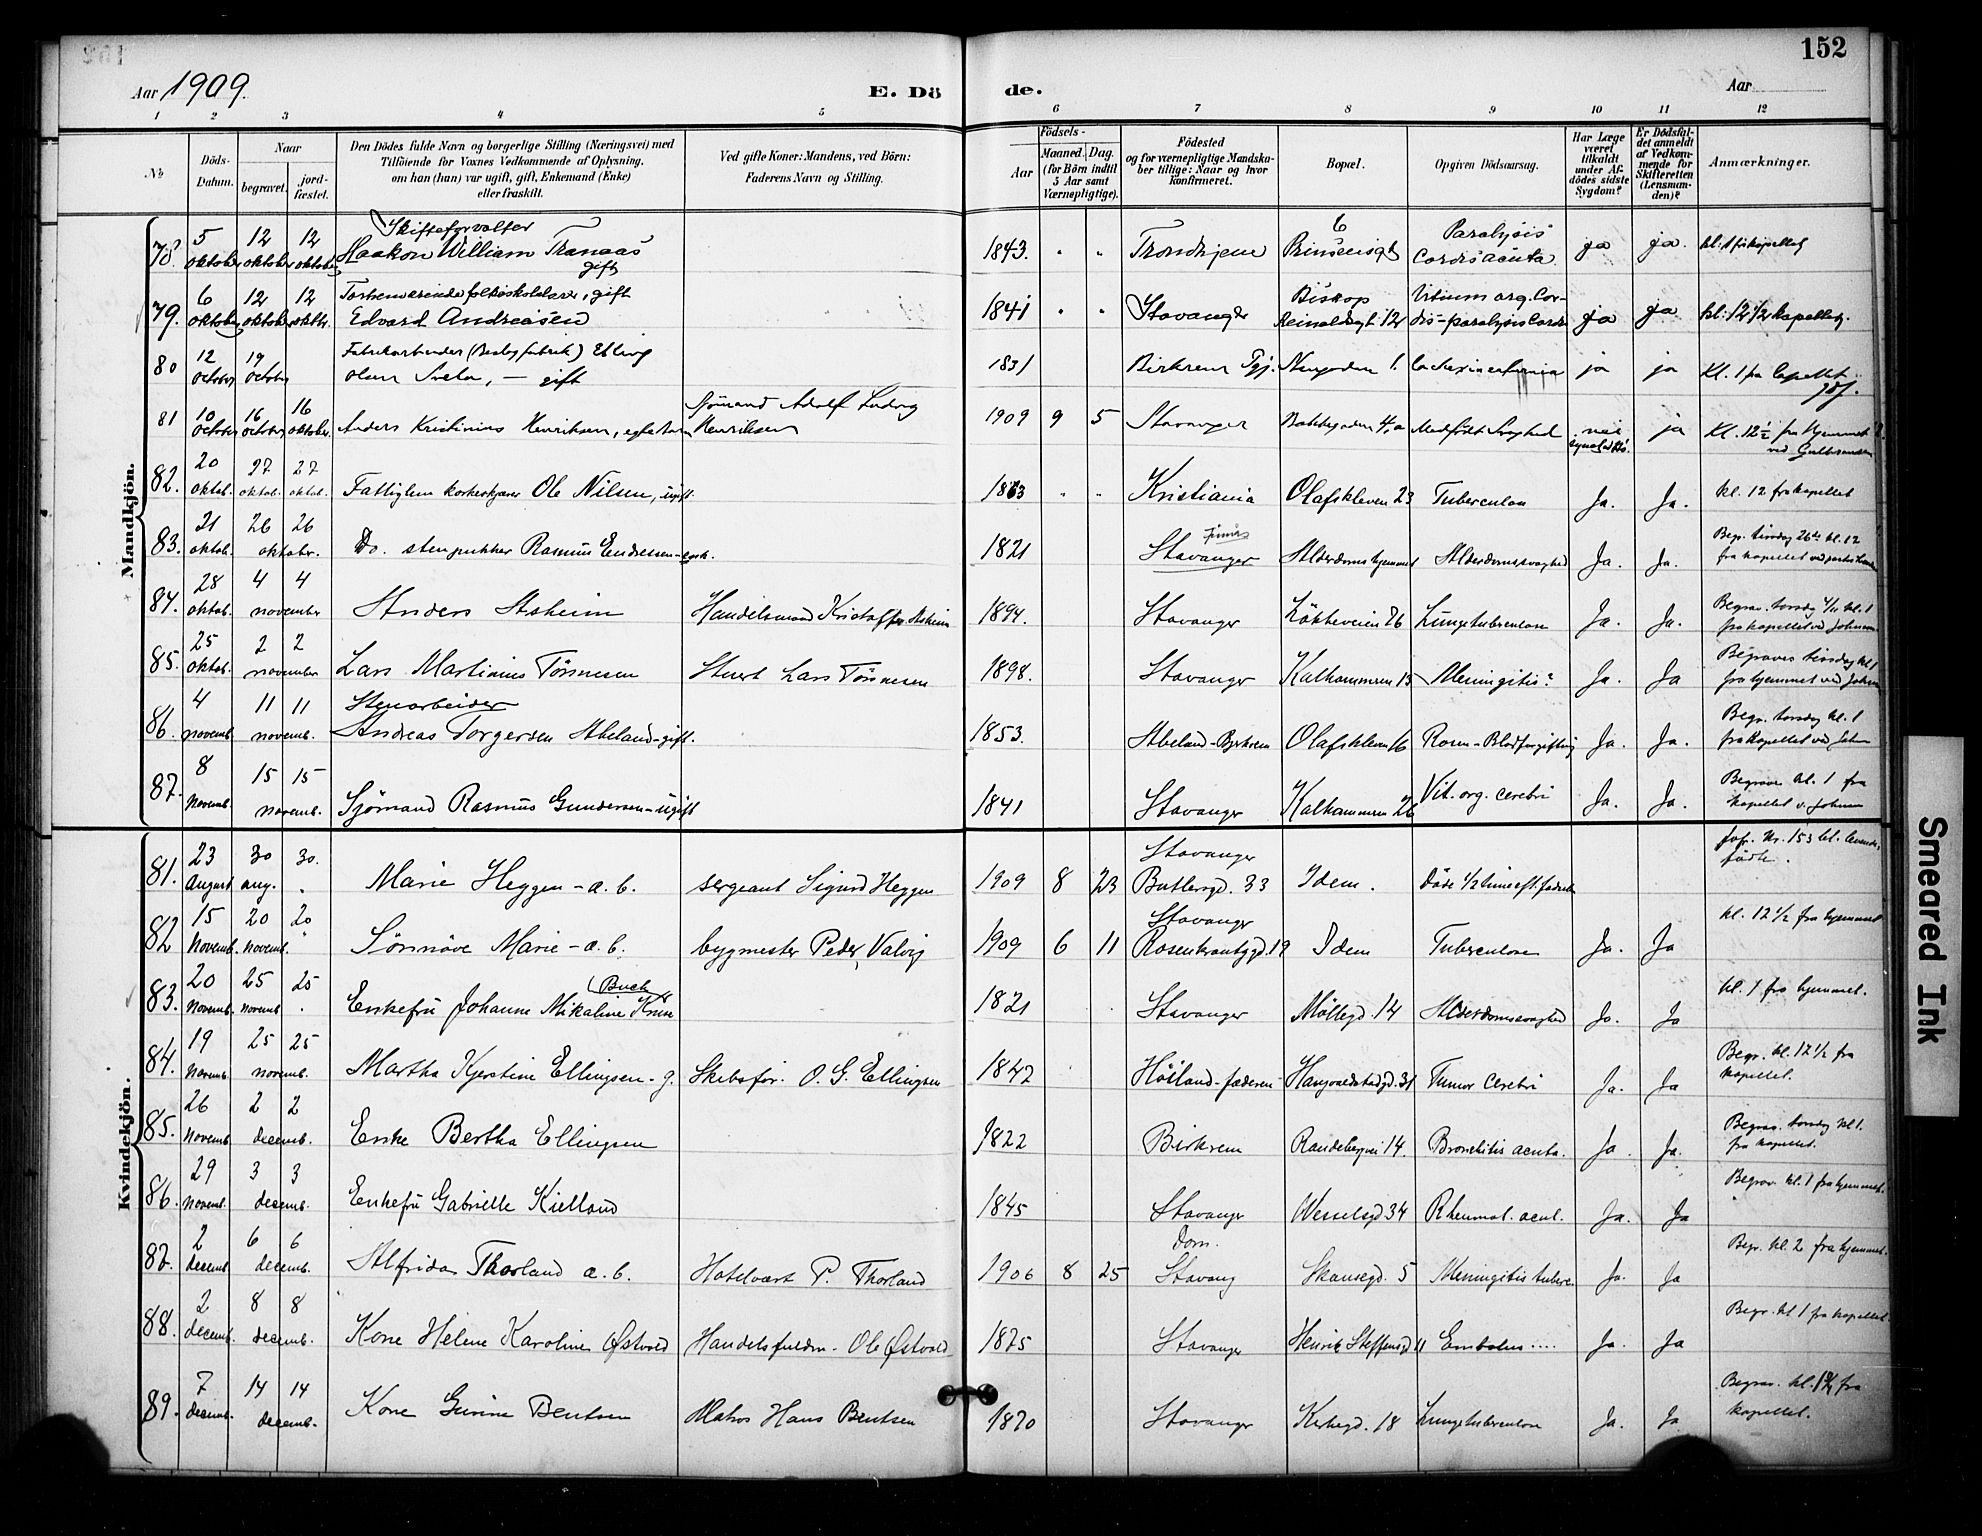 152
Aar 1909.
E. Dö de.
Aar
1 2 3 4 5 6 7 8 9 10 11 12
No
Döds-Datum.
Naar
begravet.
jord-fæstet.
Den Dödes fulde Navn og borgerlige Stilling (Næringsvei) med
Tilföiende for Voxnes Vedkommende af Oplysning.
om han (hun) var ugift, gift, Enkemand (Enke)
eller fraskilt.
Ved gifte Koner: Mandens, ved Börn:
Faderens Navn og Stilling.
Födsels-
Aar
Maaned. Dag.
(for Börn indtil
5 Aar samt
Værnepligtige).
Födested
og for værnepligtige Mandska-
ber tillige: Naar og hvor
konfirmeret.
Bopæl.
Opgiven Dödsaarsag.
Har Læge
været
tilkaldt
under Af-
dödes sidste
Sygdom?
Er Dödsfal-
det anmeldt
af Vedkom-
mende for
Skifteretten
(Lensman-
den)?
Anmærkninger.
Mandkjön.
78. 5 oktober 12 oktober 12 oktober Skifteforvalter Haakon William Tranaas gift 1843. " " Trondhjem 6 Prinsensgt Paralysis Cordis acuta. ja ja. kl. 1 fra kapellet
79. 6 oktober 12 oktober 12 oktbr. folkeskolelærer, gift Edvard Andreasen 1841 " " Stavanger Biskop Reinaldsgt 12 Vitium org. Cordis - paralysis Cordis ja ja kl. 12 1/2 kapellet.
80 12 october 19 october Fabrikarbeider Elling Olsen Svela, - gift 1831 Birkrem Pgj. ja ja Kl. 1 fra Capellet
81 10 october 16 october 16 oktober. Anders Kristinius Henriksen, Sjömand Adolf Ludvig Henriksen 1909 9 5 Stavanger Medfödt Svaghed nei ja Kl. 12 1/2 fra hjemmet ved Gulbransen
82. 20 oktob. 27 oktob. 27 oktob. Fattiglem Ole Nilsen, ugift. 1863 " " Kristiania Olafskleven 23 Tuberculose Ja. Ja. kl. 12 fra kapellet
83. 21 oktob. 26 26 oktober. Do. stenpukker Rasmus Endresen - enk. 1821 Finnö Stavanger Alderdomshjemmet Alderdomssvaghed Ja. Ja. Begr. tirsdag 26de kl. 12 fra kapellet
84. 28 oktob. 4 4 november Anders Asheim Handelsmand Kristoffer Asheim 1894. Stavanger Lökkeveien 26 Lungetuberculose Ja. Ja. Begrav. torsdag 4/11 kl. 1 fra kapellet ved Johnsen
85. 25 oktob. 2 2 november Lars Martinius Tönnesen Stuert Lars Tönnesen 1898. Stavanger Kalhammeren 13 Meningitis? Ja. Ja Begraves tirsdag kl 1 fra hjemmet ved Johnsen
86. 4 novemb. 11 11 novemb. Stenarbeider Andreas Torgersen Abeland - gift. 1853. Abeland - Bjerkrem Olafskleven 16 Rosen - Blodforgiftning Ja. Ja. Begr. torsdag kl. 1 fra kapellet ved John
87. 8 novemb. 15 15 novemb. Sjömand Rasmus Gundersen - ugift 1841 Stavanger Kalhammeren 26 Vit. org. cerebri Ja. Ja. Begrave kl. 1 fra kapellet v. Johnsen
Kvindekjön.
81. 23 August 30 aug. 30. " Marie Heggen - æ. b. sergeant Sigurd Heggen 1909 8 23 Stavanger Butlersgd. 33 Idem. Döde 1/2 time eft. födselen Jvfr. Nr. 153 bl. levende födte.
82 15 novemb. 20 novemb. 20 " Sönnöve Marie - æ. b. bygmester Peder Valvig 1909 6 11 Stavanger Rosenkrantzgd. 19 Idem Tuberculose Ja. Ja kl. 12 1/2 fra hjemmet
83. 20 novemb. 25 novemb 25 " Enkefru Johanne Mikaline (Buch) 1821 Stavanger Möllegd. 14 Alderdomssvaghed Ja. Ja kl. 1 fra hjemmet.
84. 19 novemb. 25 25 novemb. Martha Kjerstine Ellingsen - g. Skibsför. O. G. Ellingsen 1842 Höiland - Jæderen 31 Tumor cerebri Ja. Ja Begr. kl. 12 1/2 fra kapellet.
85. 26 novemb 2 2 decemb. Enke Bertha Ellingsen 1822 Birkrem Randebergvei 14. Bronchitis acuta. Ja. Ja. Begrav. torsdag kl 1. fra kapellet.
86. 29 novemb. 3 3 decemb. Enkefru Gabrielle Kielland 1845 Stavanger Dom. Wesselsgd 34 Rheumat. acut. Ja. Ja Begrav. kl. 1 fra hjemmet.
87. 2 decemb 6 6 decemb. Alfrida Thorland æ. b. Hotelvært P. Thorland 1906 8 25 Stavang Skansegd. 5 Meningitis tuberc. Ja. Ja Begr. kl. 2 fra hjemmet.
88. 2 decemb. 8 8 decemb. Kone Helene Karoline Østvold Handelsfuldm. Ole Østvold 1875 Stavanger Henrik Steffensgd 11 Embolus .... Ja. Ja Begr. kl 1 fra kapellet.
89. 7 decemb. 14 14 decemb. Kone Gurine Bentsen Matros Hans Bentsen 1870 Stavanger Kirkegd. 18 Lungetuberculose Ja. Ja. Begrav. kl. fra kapellet.
Smeared Ink